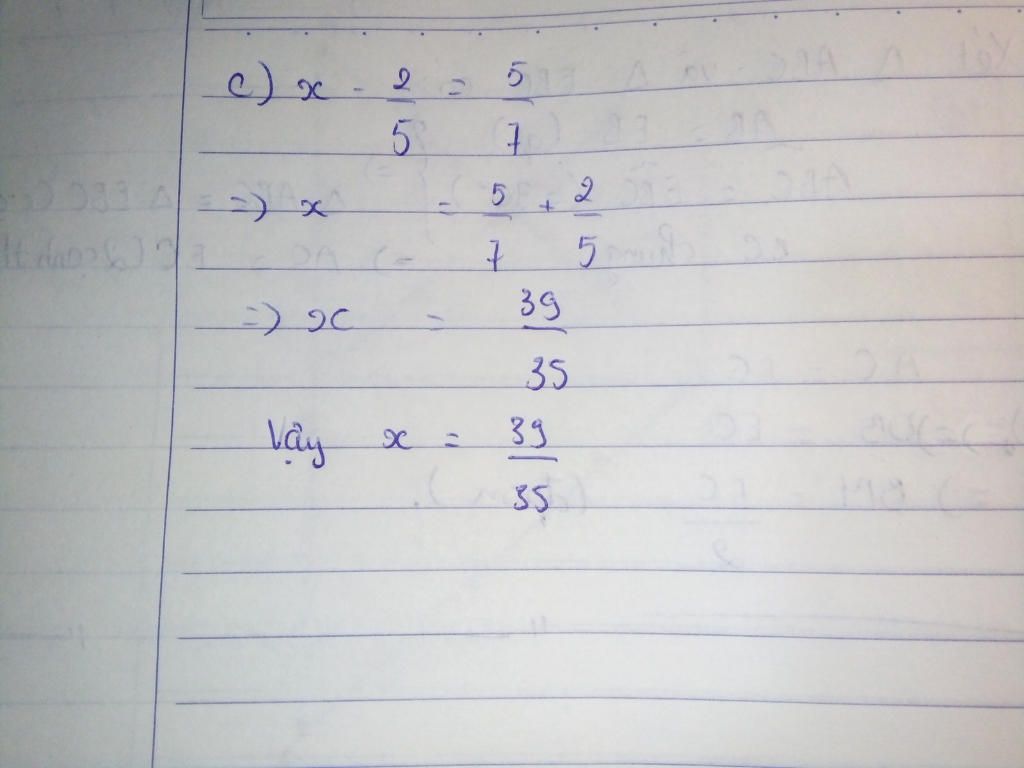 c) x - 2/5 = 5/7
=) x = 5/7 + 2/5
=) x = 39/35
Vậy x = 39/35